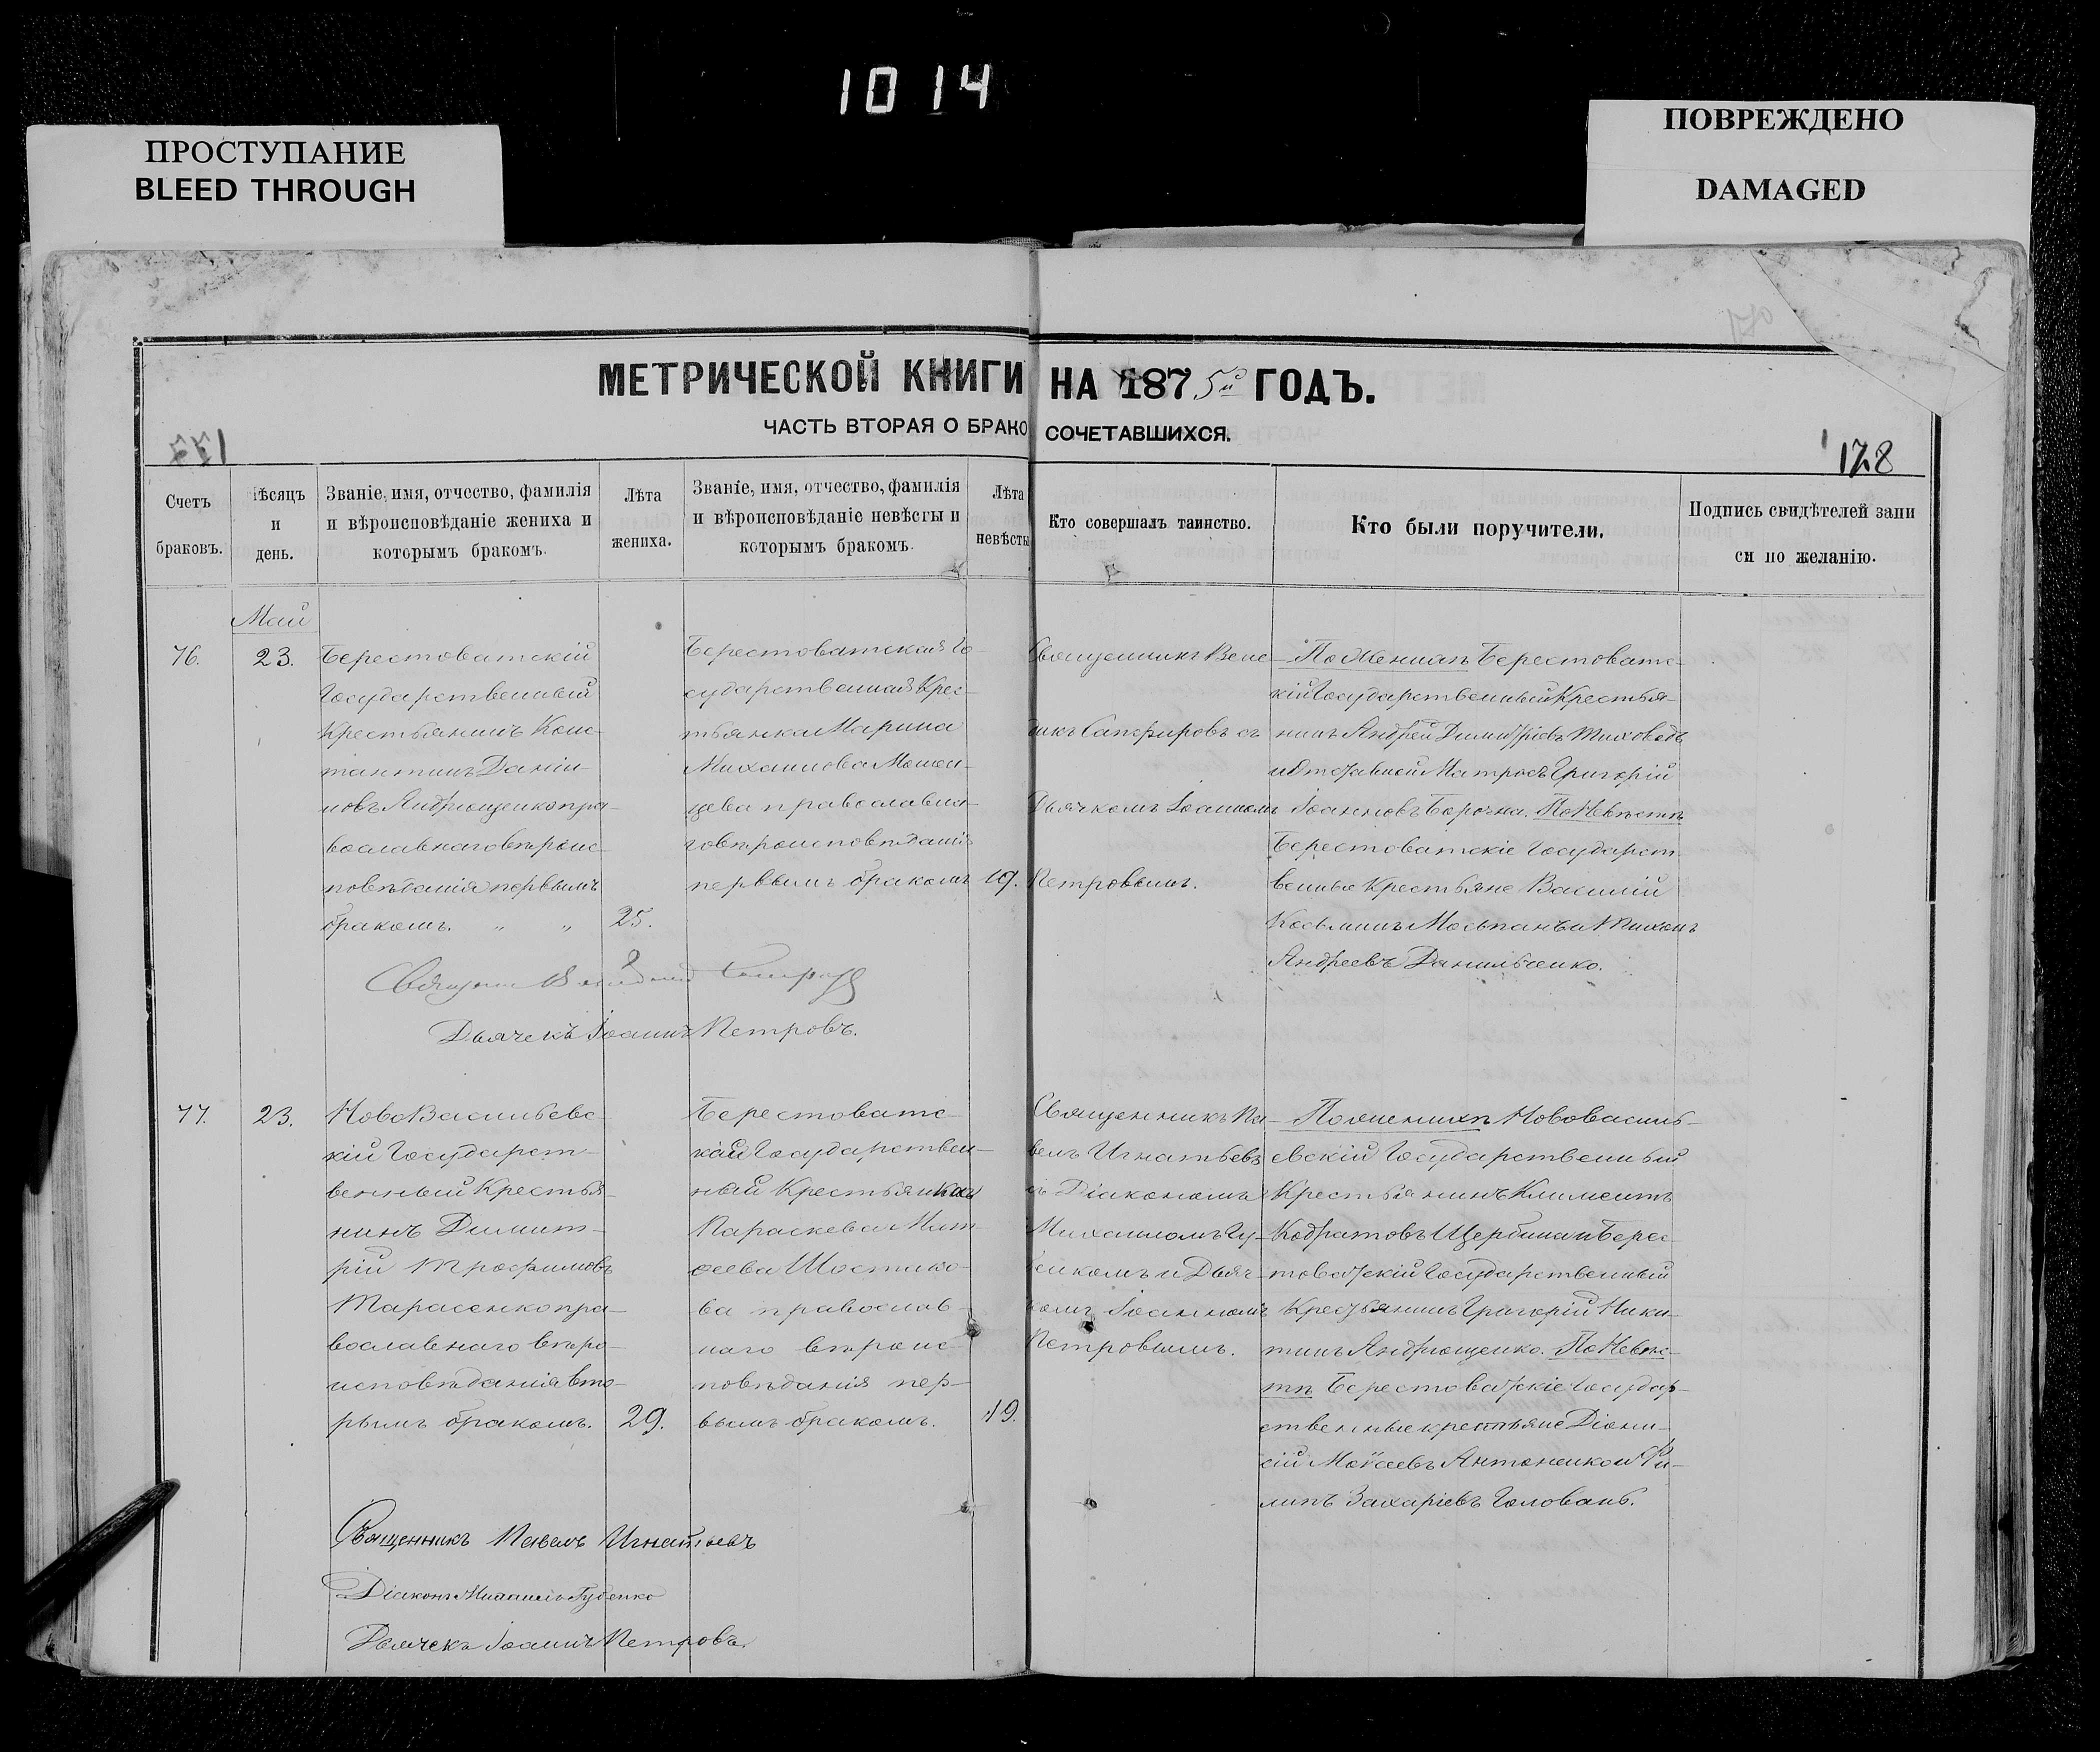 1014
ПРОСТУПАНИЕ
BLEED THROUGH
ПОВРЕЖДЕНО
DAMAGED
МЕТРИЧЕСКОЙ КНИГИ НА 1875й ГОДЪ.
ЧАСТЬ ВТОРАЯ О БРАКОСОЧЕТАВШИХСЯ.
177
178
Счетъ
браковъ.
мѣсяцъ
и
день.
Званіе, имя, отчество, фамилія
и вѣроисповѣданіе жениха и
которымъ бракомъ.
Лѣта
жениха.
Званіе, имя, отчество, фамилія
и вѣроисповѣданіе невѣсты и
которымъ бракомъ.
Лѣта
невѣсты
Кто совершалъ таинство.
Кто были поручители.
Подпись свидѣтелей запи
си по желанію.
Май
76.
23.
Берестоватскій
Государственный
Крестьянинъ Конс-
тантинъ Даніи-
ловъ Андрющенко пра-
вославнаго вѣроис-
повѣданія первымъ
бракомъ. „ „
25.
Берестоватская Го-
сударственная Крес-
тьянка Марина
Михаилова
цева православна-
го вѣроисповѣданія
первымъ бракомъ
19.
Священникъ Вене-
диктъ Сапфировъ съ
Дьячкомъ Іоанномъ
Петровымъ.
По Женихѣ Берестоватс-
кій Государственный Крестья-
нинъ Андрей Димитріевъ
и Отставной Матросъ Григорій
Іоанновъ . По Невѣстѣ
Берестоватскіе Государст-
венные Крестьяне Василій
Косьминъ Мосьпанъ и Тихонъ
Андреевъ Данильченко.
Священ Венедиктъ Сапфировъ
Дьячекъ Іоаннъ Петровъ.
77.
23.
НовоВасильевс-
кій Государст-
венный Крестья-
нинъ Димит-
рій Трофимовъ
Тарасенко пра-
вославнаго вѣро-
исповѣданія вто-
рымъ бракомъ.
29.
Берестоватс-
кая Государствен-
ный Крестьянка
Параскева Мат-
ѳеева Шостако-
ва православ-
наго вѣроис-
повѣданія пер-
вымъ бракомъ.
19.
Священникъ Па-
велъ Игнатьевъ
съ Діакономъ
Михаиломъ Гу-
бенкомъ и Дьяч-
комъ Іоанномъ
Петровымъ.
По женихѣ Нововасиль-
евскій Государственный
Крестьянинъ Климентъ
Кодратовъ Щербина и Берес-
товатскій Государственный
Крестьянинъ Григорій Ники-
тинъ Андрющенко. По Невѣс-
тѣ Берестоватскіе Государ-
ственные крестьяне Діони-
сій Моисеевъ Антоненко и Фи-
липъ Захаріевъ Головань.
Священникъ Павелъ Игнатьевъ
Діаконъ Михаилъ Губенко
Дьячекъ Іоаннъ Петровъ.